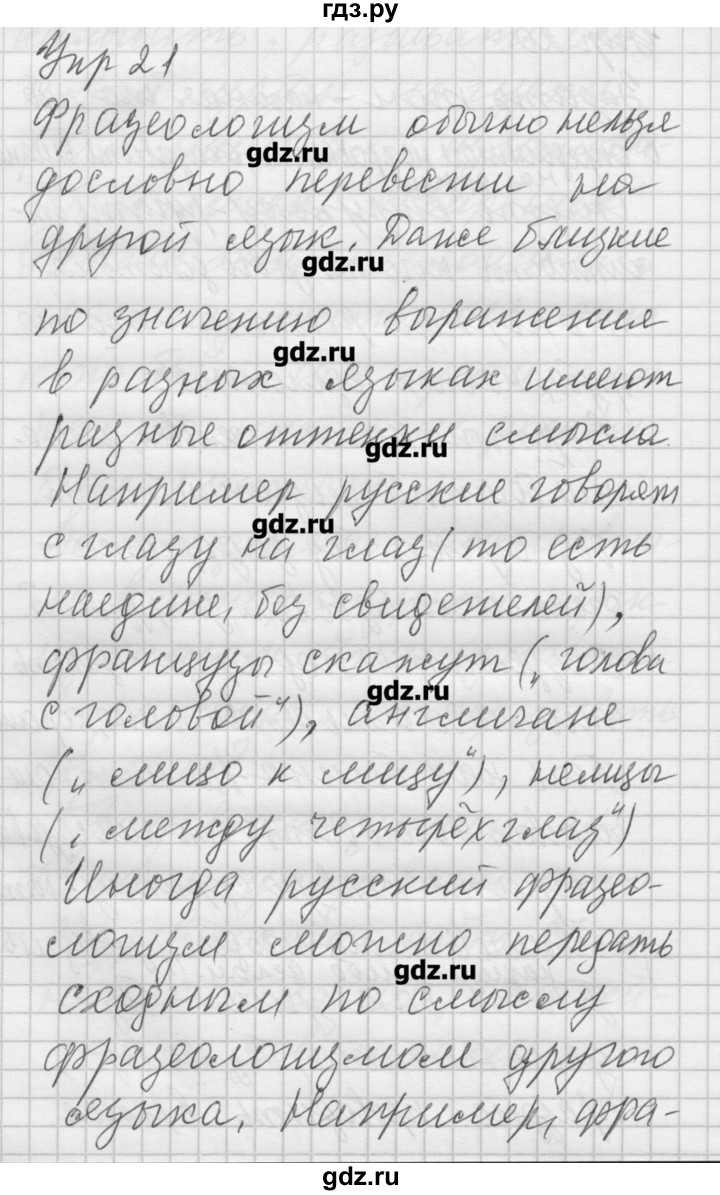 гдз.ру
Упр 21
Фразеологизм обычно нельзя
gdz.ru
дословно перевести на
другой язык. Даже близкие
gdz.ru
по значению выражения
gdz.ru
в разных языках имеют
разные оттенки смысла.
gdz.ru
Например русские говорят
gdz.ru
с глазу на глаз (то есть
наедине, без свидетелей),
французы скажут („голова
gdz.ru
с головой“), англичане
(„лицо к лицу“), немцы
(„между четырёх глаз“)
Иногда русский фразео-
логизм можно передать
gdz.ru
сходным по смыслу
фразеологизмом другого
языка. Например, фра-
gdz.ru